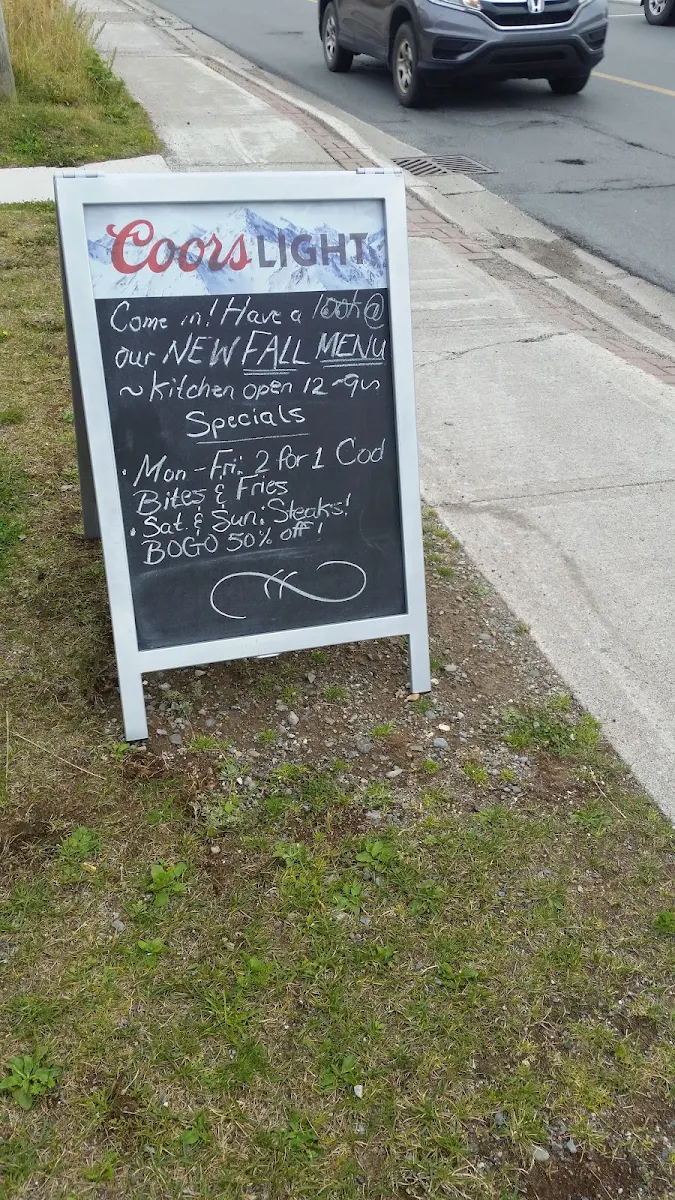 Coors LIGHT
Come in! Have a look @
our NEW FALL MENU
~ Kitchen open 12-9
Specials
· Mon-Fri: 2 for 1 Cod
Bites & Fries
· Sat. & Sun: Steaks!
BOGO 50% off!